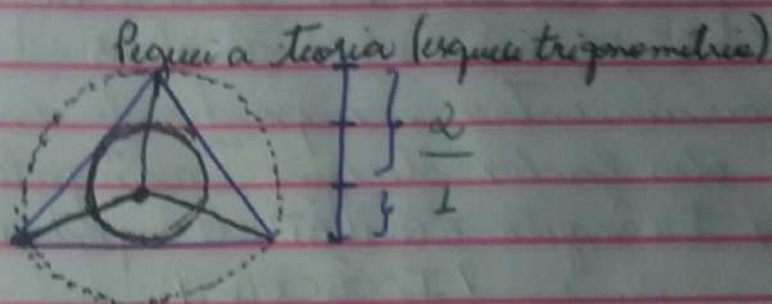 Peguei a teoria (esqueci trigonometria)
2
1